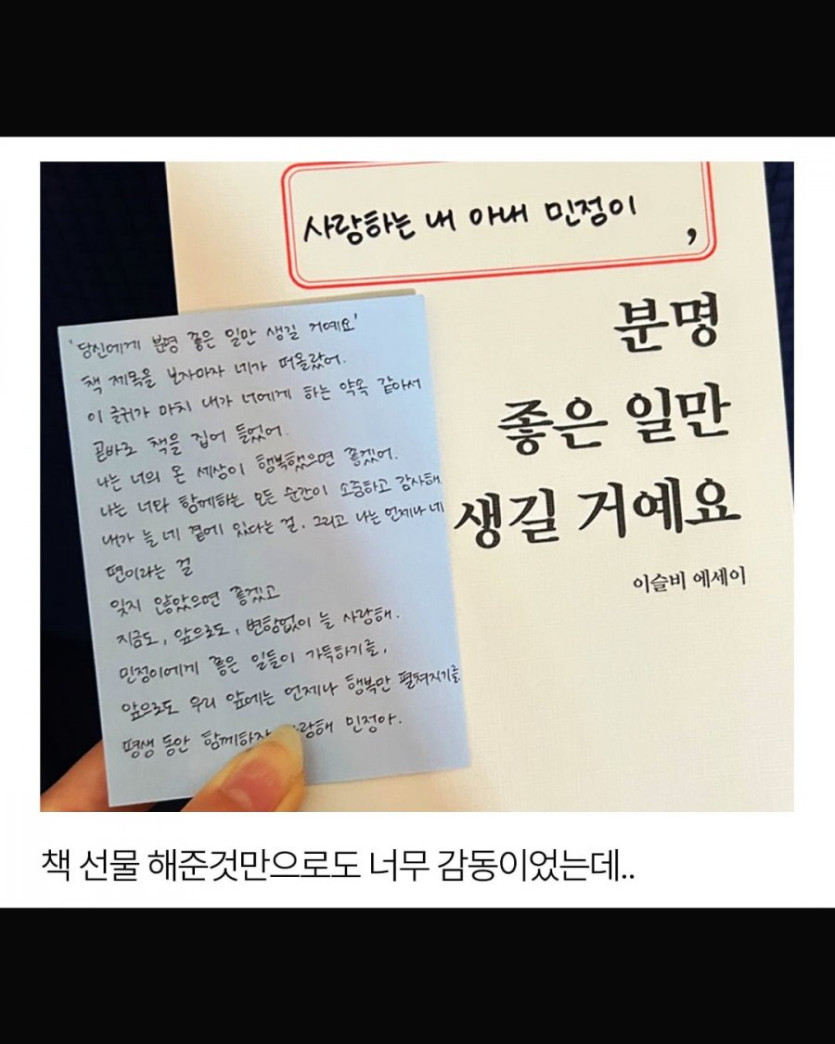 사랑하는 내 아내 민정이
,
분명
좋은 일만
생길 거예요
이슬비 에세이
'당신에게 분명 좋은 일만 생길 거예요'
책 제목을 보자마자 네가 떠올랐어.
이 글귀가 마치 내가 너에게 하는 약속 같아서
곧바로 책을 집어 들었어.
나는 너의 온 세상이 행복했으면 좋겠어.
나는 너와 함께하는 모든 순간이 소중하고 감사해.
내가 늘 네 곁에 있다는 걸, 그리고 나는 언제나 네
편이라는 걸
잊지 않았으면 좋겠고
지금도, 앞으로도, 변함없이 늘 사랑해.
민정이에게 좋은 일들이 가득하기를,
앞으로도 우리 앞에는 언제나 행복만 펼쳐지기를
평생 동안 함께하자 민정아.
책 선물 해준것만으로도 너무 감동이었는데..